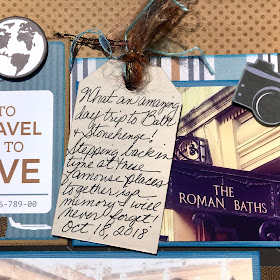 TO
RAVEL
TO
VE
6-789-00
What an amazing
day trip to Bath
& Stonehenge!
Stepping back in
time at these
famous places
together, is a
memory I will
never forget!
Oct 18, 2018
THE
ROMAN BATHS